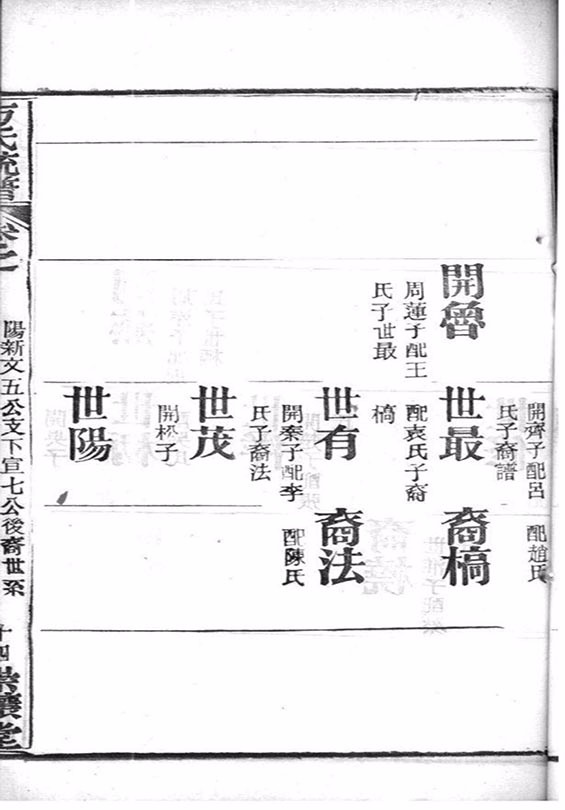 開齊子配呂
氏子裔譜
配趙氏
開魯
周蓮子配王
氏子世最
世最
配袁氏子裔
槁
裔槁
世有
開秦子配李
氏子裔法
裔法
配陳氏
世茂
開松子
世陽
氏統譜
卷之
陽新文五公支下宣七公後裔世系
十四
崇讓堂